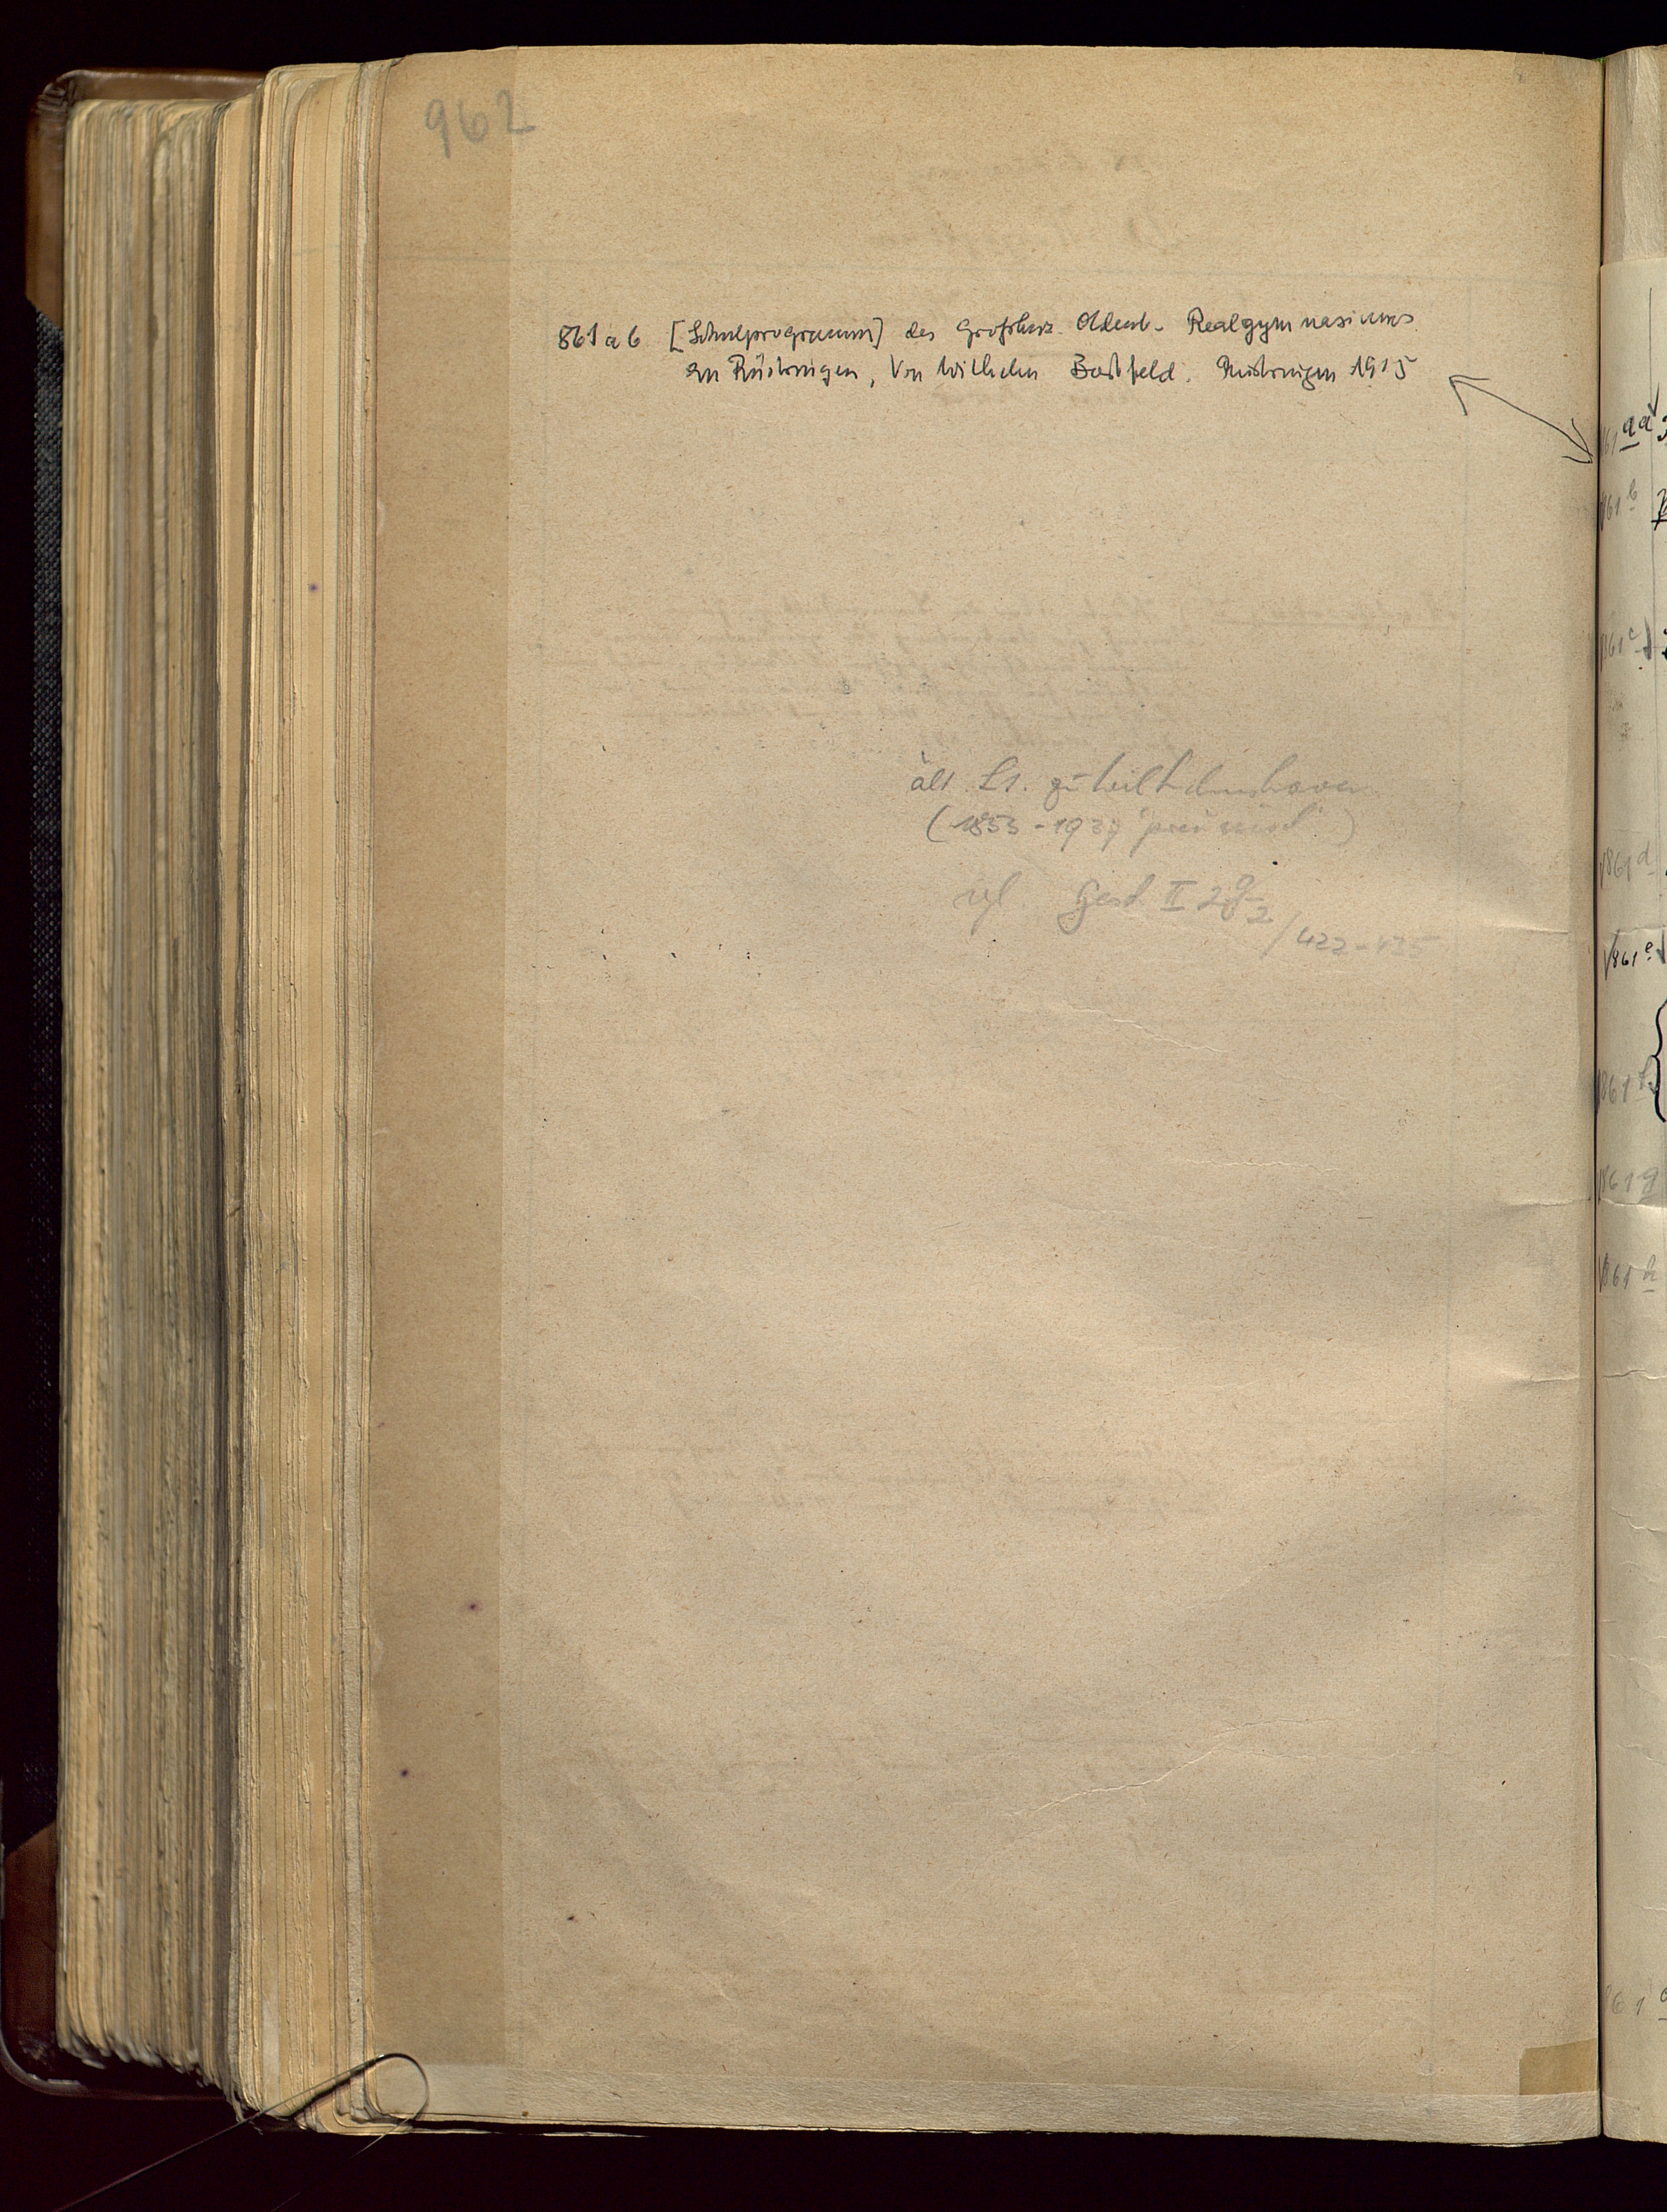 962
861 a b [Schulprogramm] des Großherz. Oldenb. Realgymnasiums
zu Rüstringen, Von Wilhelm Bortfeld. Rüstringen 1915
ält. Lt. zu Wilhelmshaven
(1853-1937
vgl. Gesch II 2g 2/422-425
861 aa
861 b
861 c
861 d
861 e
861 f
861 g
861 h